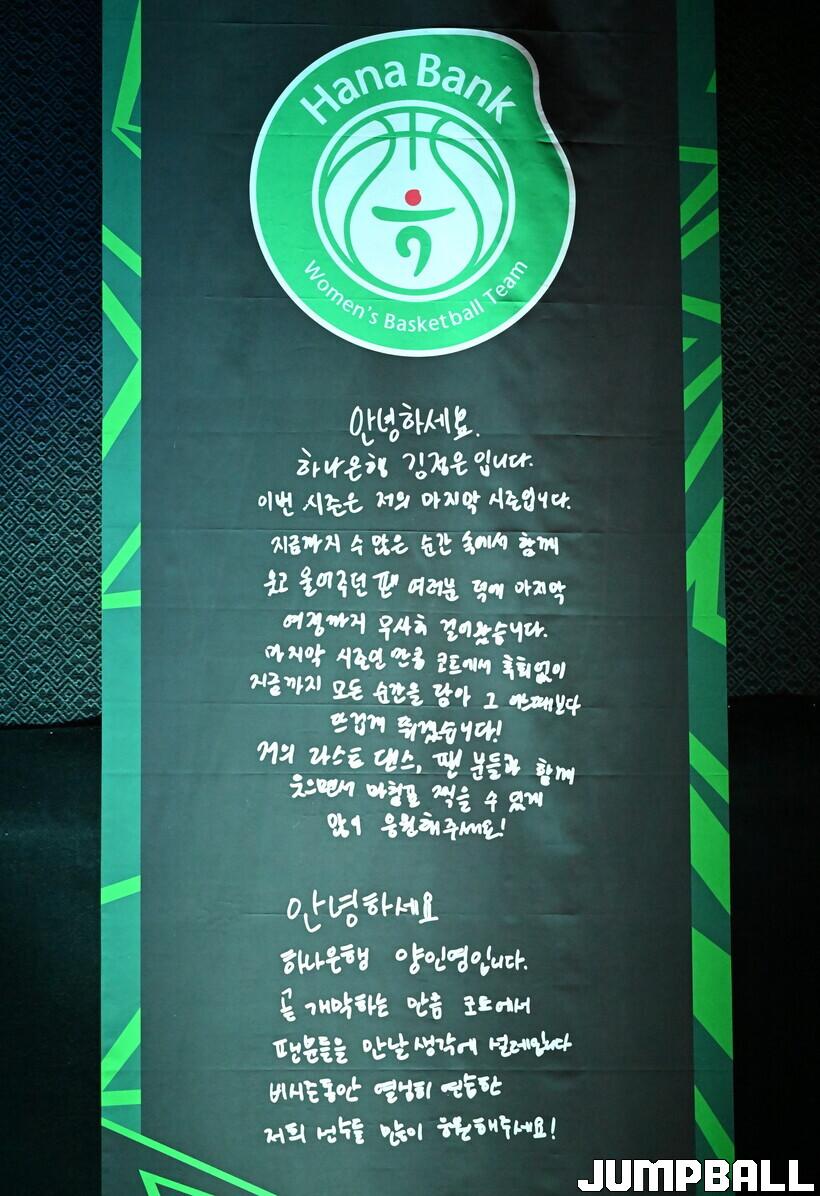 Hana Bank
Women's Basketball Team
안녕하세요.
하나은행 김정은입니다.
이번 시즌은 저의 마지막 시즌입니다.
지금까지 수 많은 순간 속에서 함께
웃고 울어주던 팬 여러분 덕에 마지막
여정까지 무사히 걸어왔습니다.
마지막 시즌인 만큼 코트에서 후회없이
지금까지 모든 순간을 담아 그 어느때보다
뜨겁게 뛰겠습니다!
저의 라스트 댄스, 팬 분들과 함께
웃으면서 마침표 찍을 수 있게
많이 응원해주세요!
안녕하세요
하나은행 양인영입니다.
곧 개막하는 만큼 코트에서
팬분들을 만날 생각에 설레입니다
비시즌동안 열심히 연습한
저희 선수들 많이 응원해주세요!
JUMPBALL